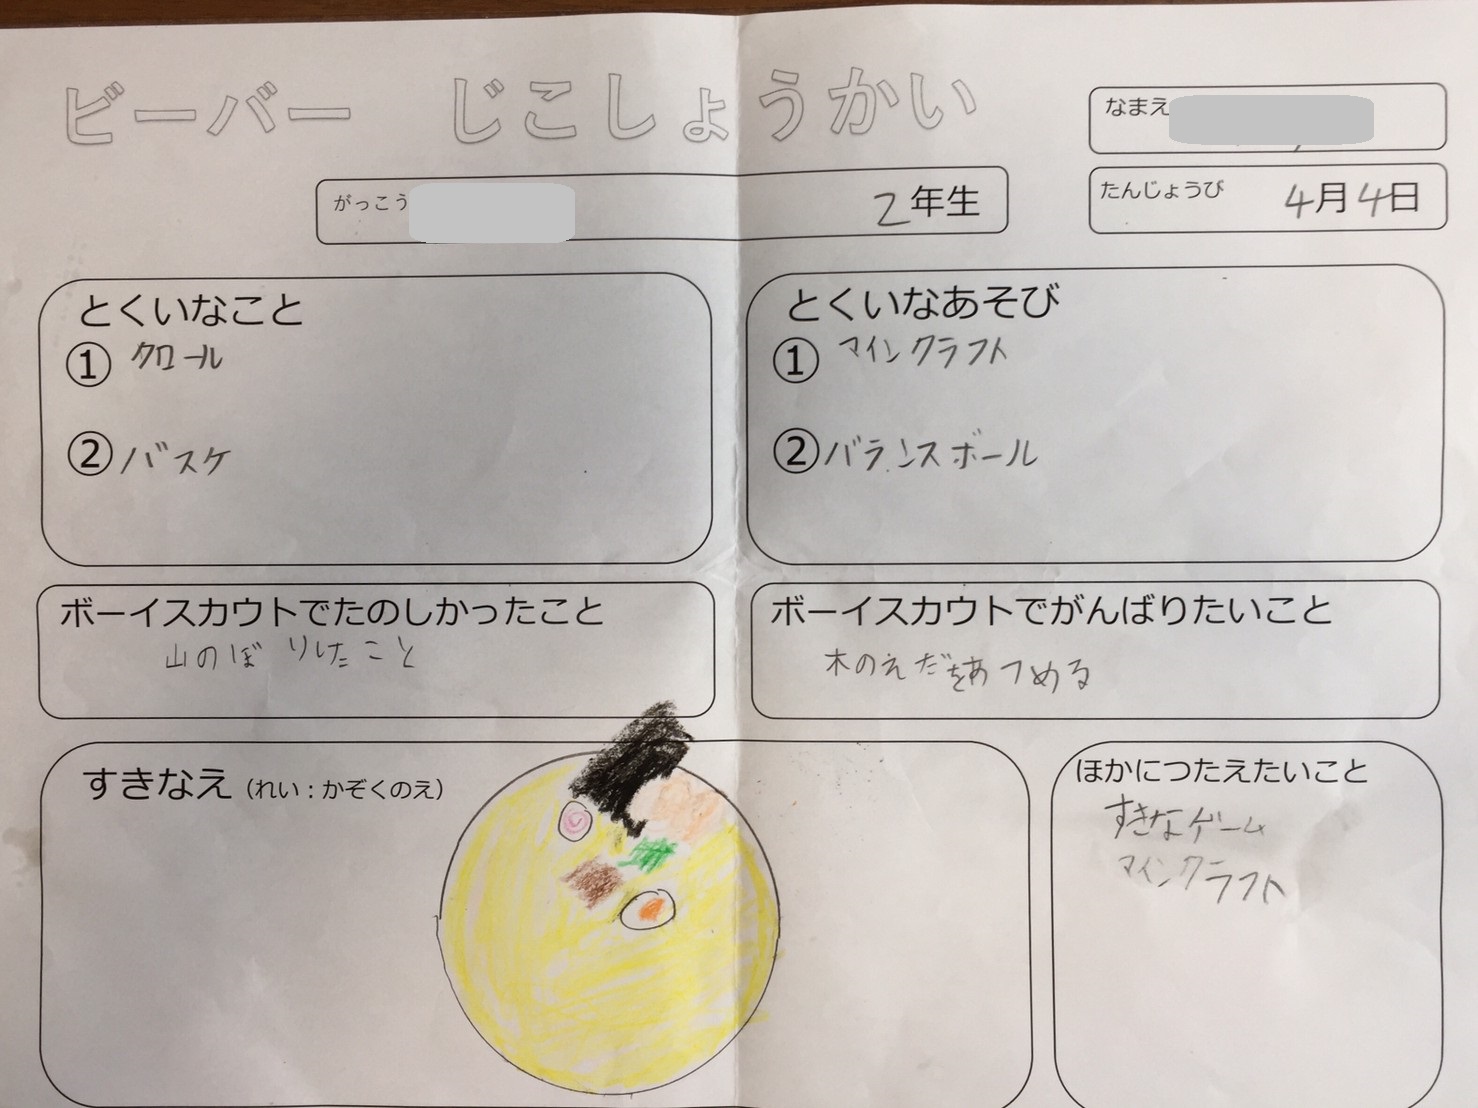 ビーバー じこしょうかい
なまえ
がっこう 2年生
たんじょうび 4月4日
とくいなこと
① クロール
② バスケ
とくいなあそび
① マインクラフト
② バランスボール
ボーイスカウトでたのしかったこと
山のぼりしたこと
ボーイスカウトでがんばりたいこと
木のえだをあつめる
すきなえ（れい：かぞくのえ）
ほかにつたえたいこと
すきなゲーム
マインクラフト